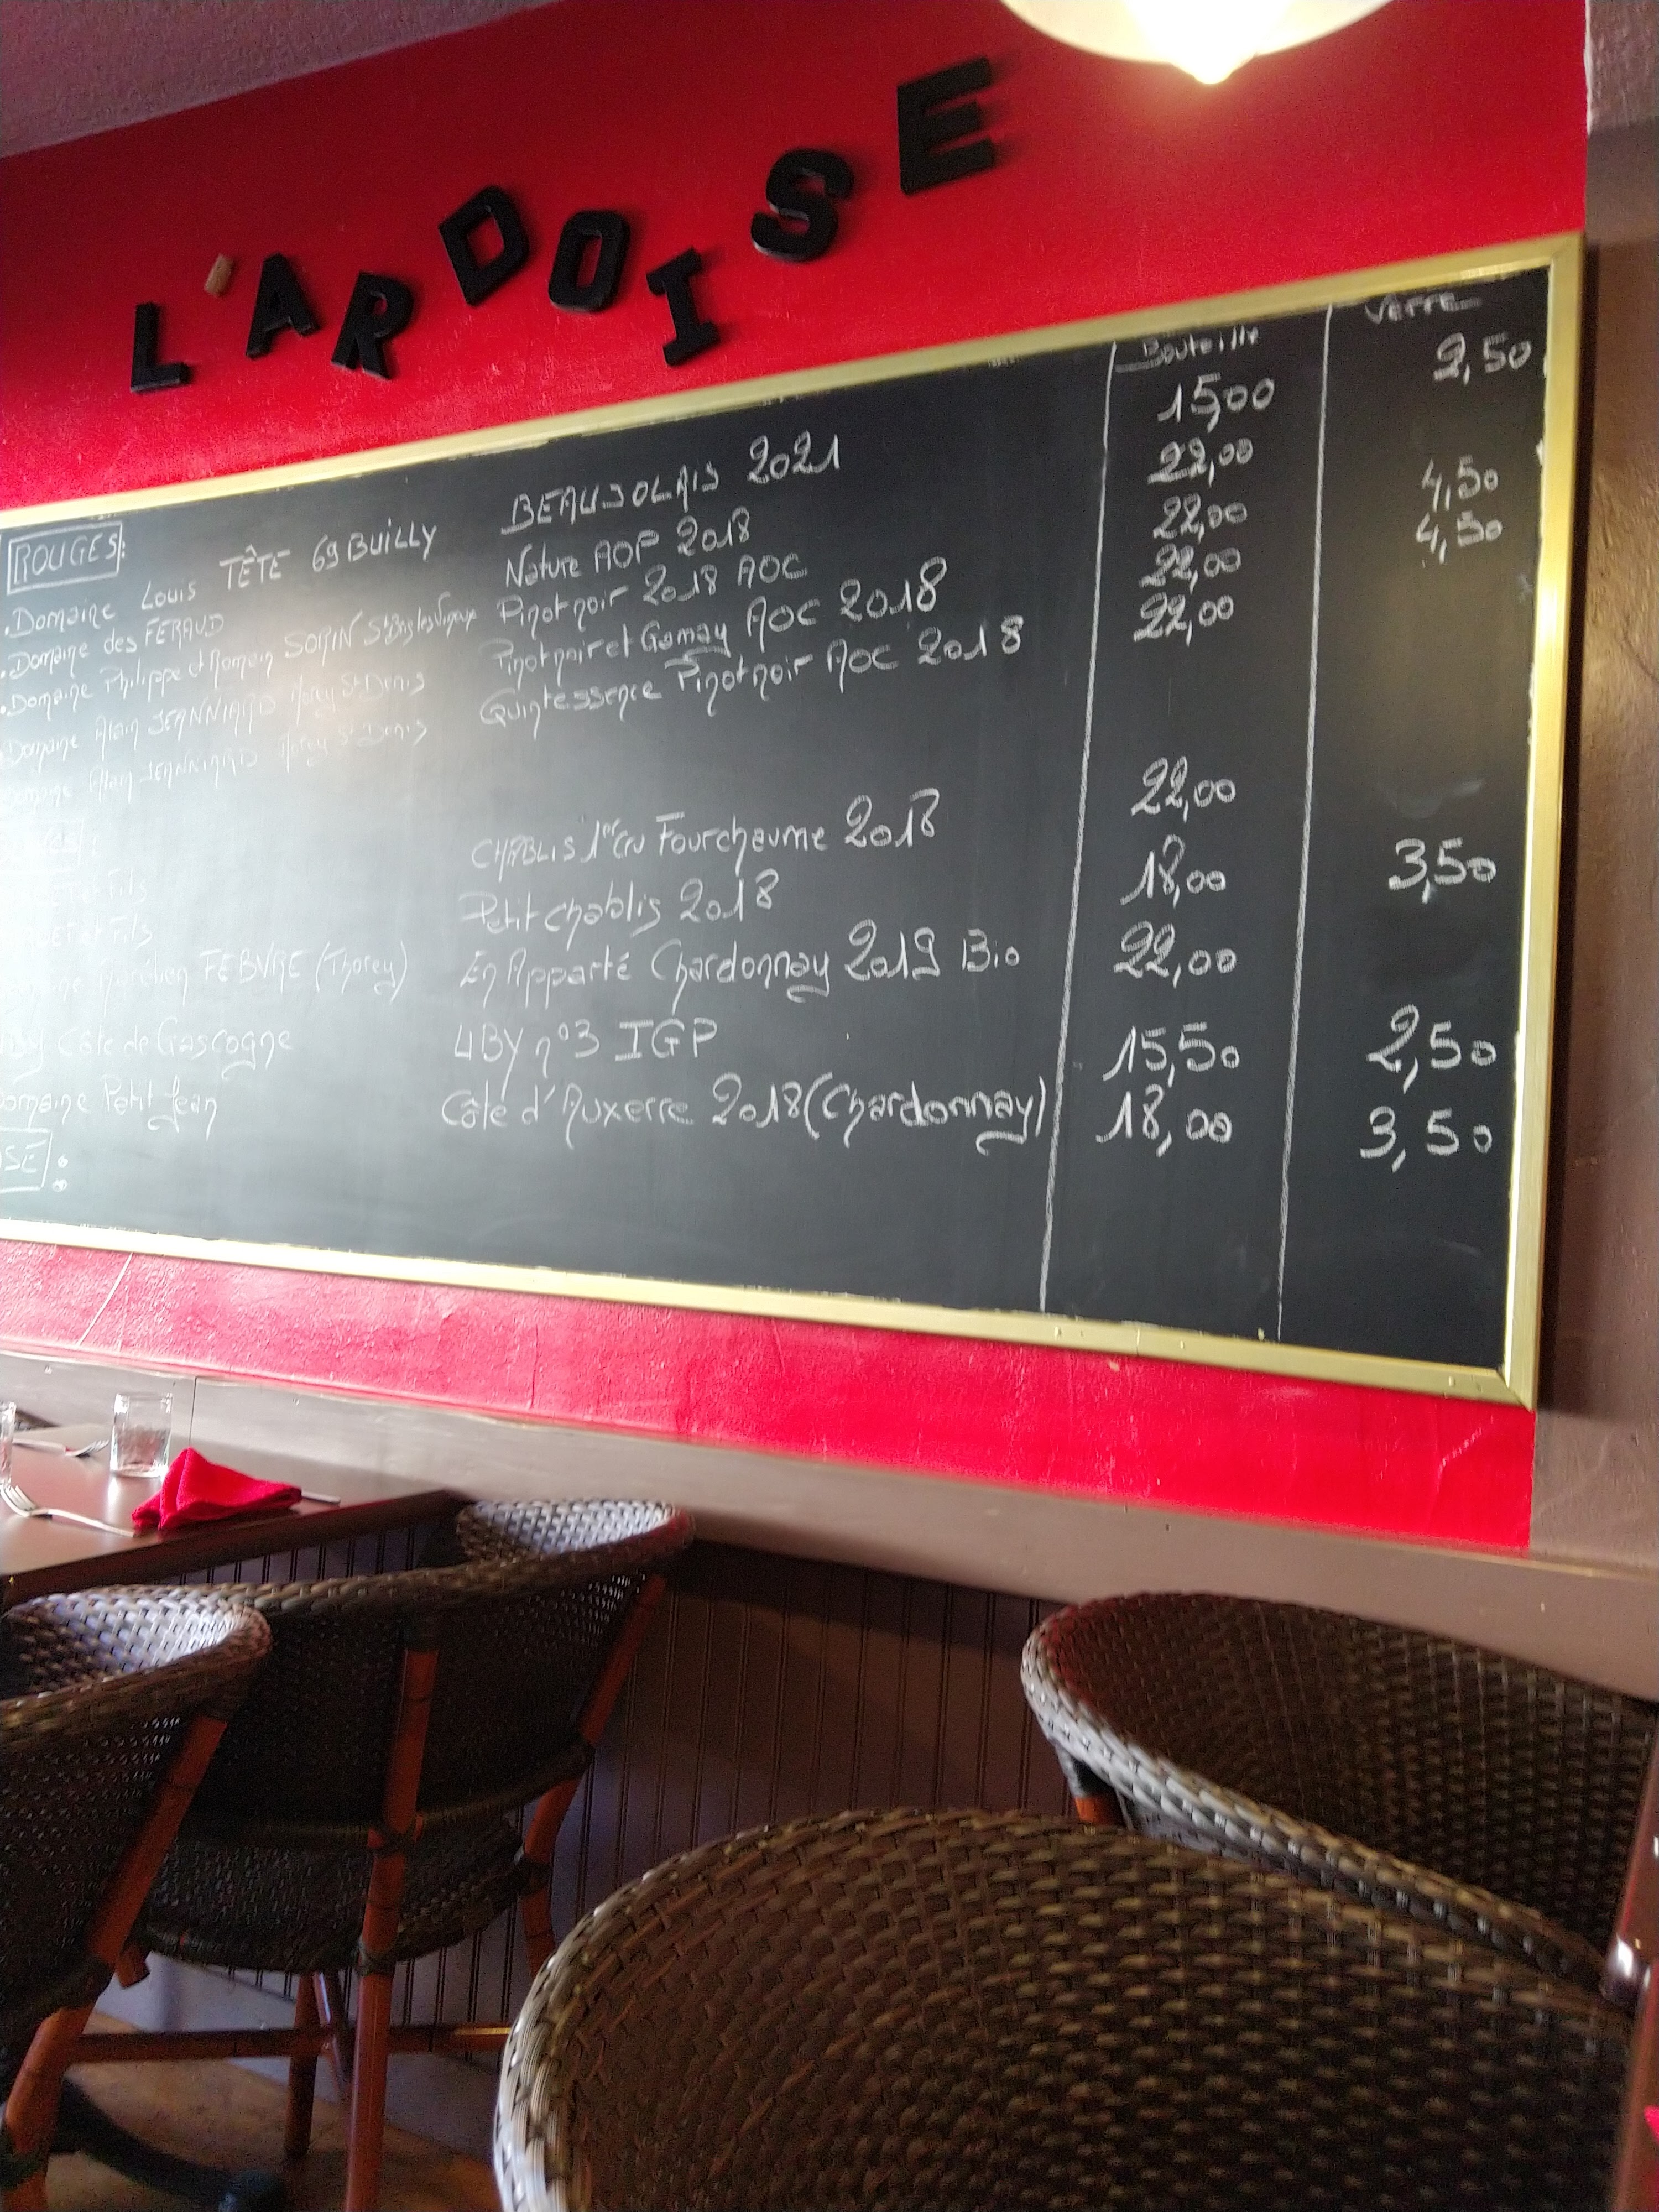 L'ARDOISE
Bouteille Verre
ROUGES:
.Domaine Louis TÊTE 69 BUILLY BEAUJOLAIS 2021 15,00 2,50
.Domaine des FERAUD Nature AOP 2018 22,00
.Domaine Philippe et Romain SORIN St Bris les Vineux Pinot noir 2018 AOC 22,00 4,50
.Domaine Alain JEANNIARD Morey St Denis Pinot noir et Gamay AOC 2018 22,00 4,50
Domaine Alain JEANNIARD Morey St Denis Quintessence Pinot noir AOC 2018 22,00
et Fils CHABLIS 1er Cru Fourchaume 2018 22,00
et Fils Petit chablis 2018 18,00 3,50
FEBVRE (Thorey) En Apparté Chardonnay 2019 Bio 22,00
Côte de Gascogne UBY n°3 IGP 15,50 2,50
omaine Petit Jean Côte d'Auxerre 2018 (Chardonnay) 18,00 3,50
SÉ: